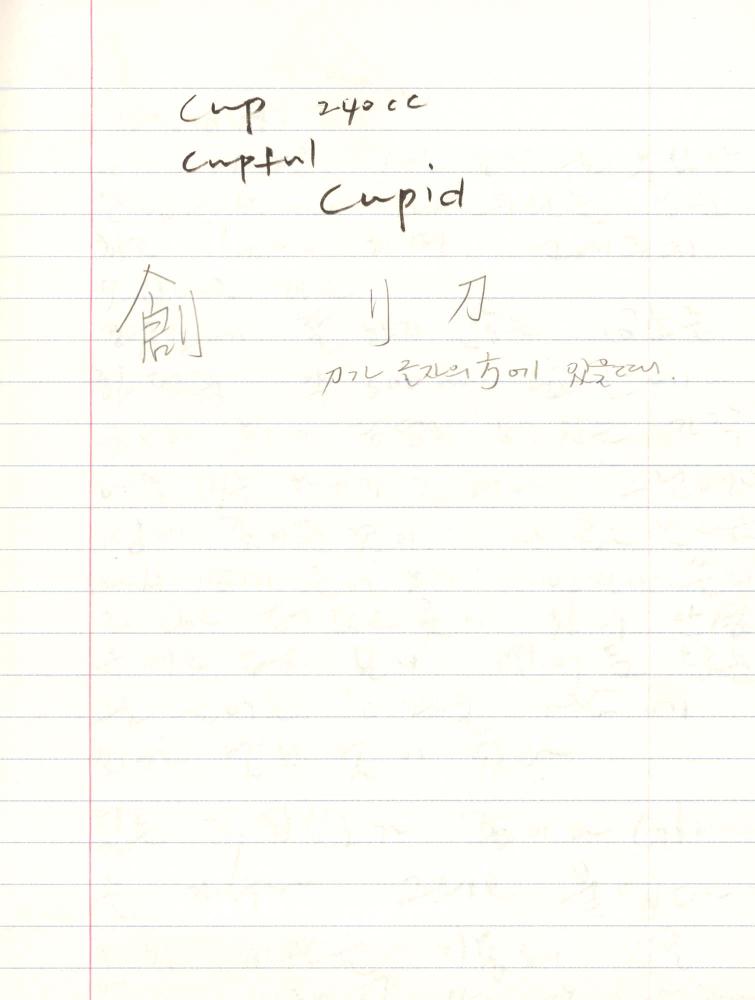 Cup 240cc
Cupful
Cupid
創 刂 刀
刀가 글자의 方에 있을때.